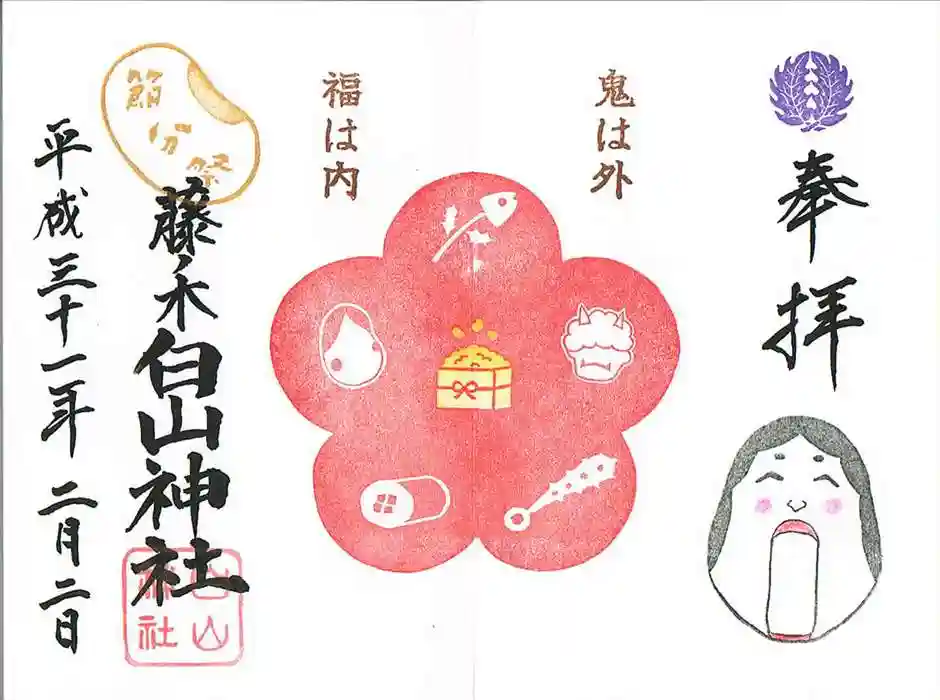 奉拝
鬼は外
福は内
節分祭
藤ノ木白山神社
平成三十一年 二月二日